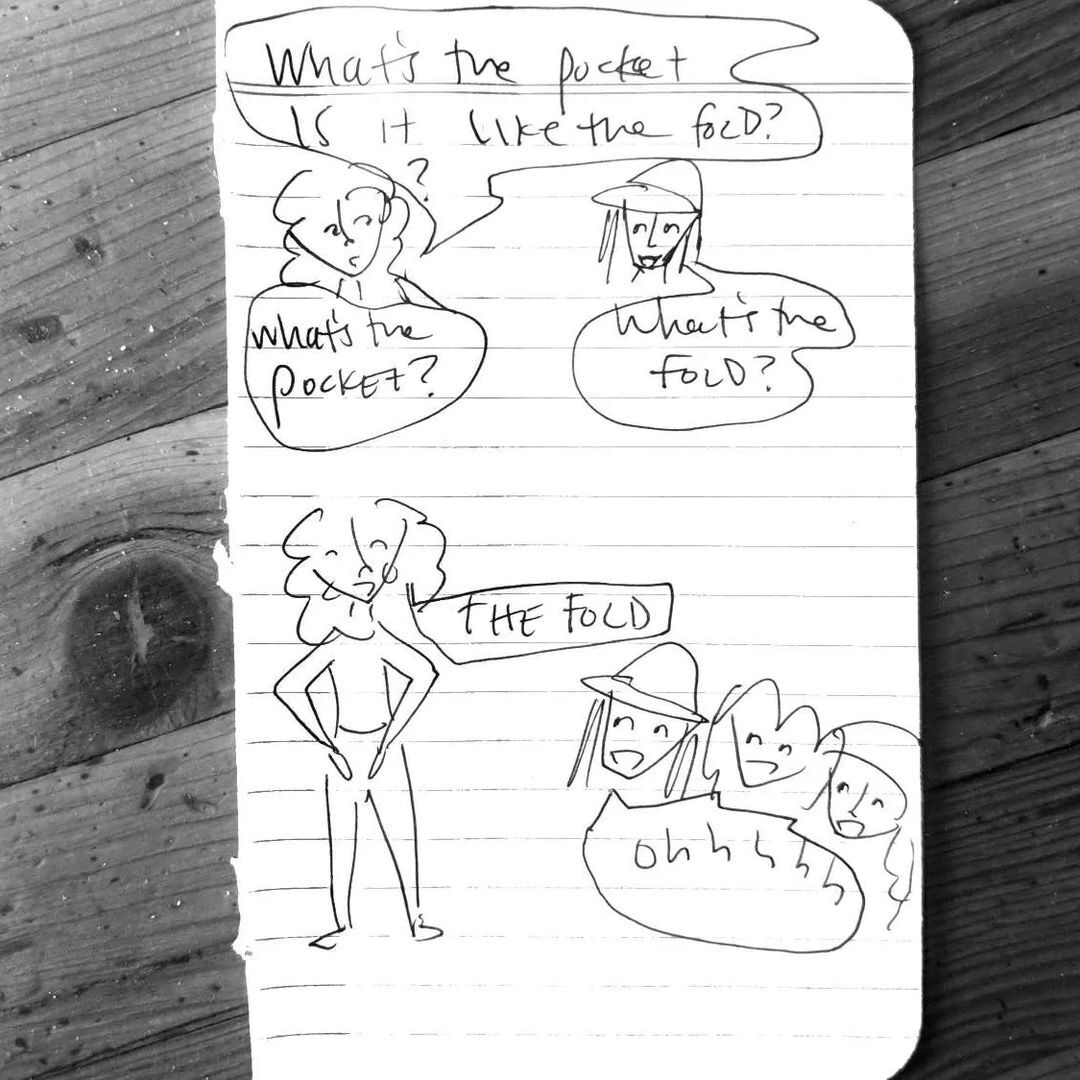 What's the pocket
Is it like the fold?
?
What's the
pocket?
What's the
fold?
THE FOLD
ohhhhh